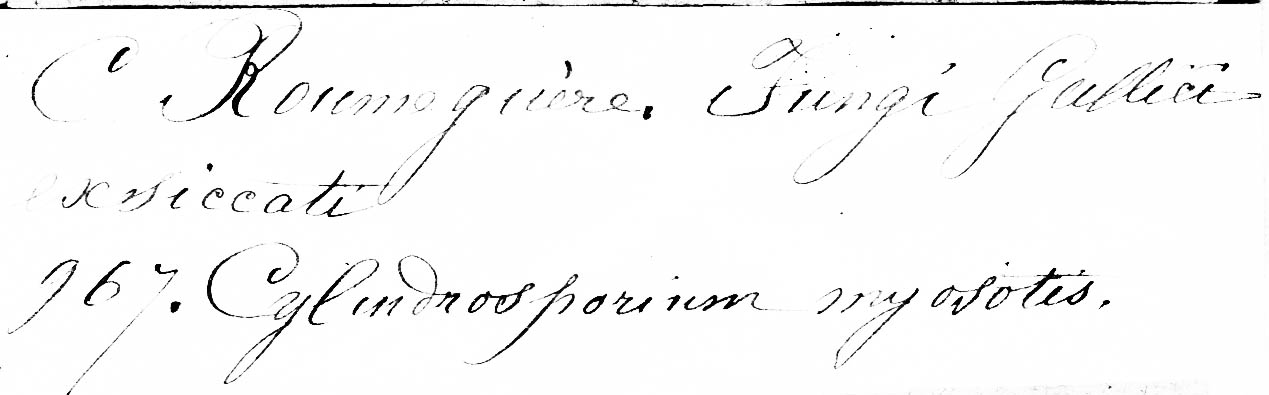 C Roumeguère. Fungi Gallici
exsiccati
967. Cylindrosporium myosotis.